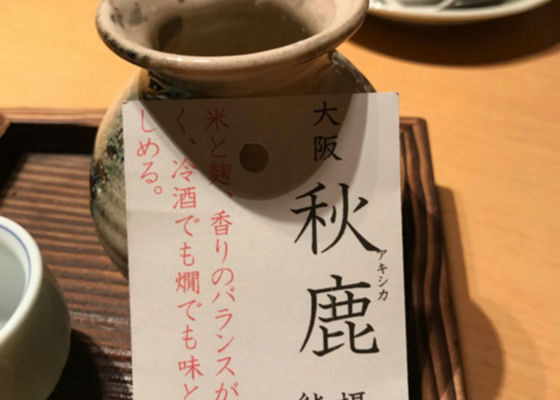 大阪
秋鹿
アキシカ
米と麹、香りのバランスが
く、冷酒でも燗でも味と
しめる。